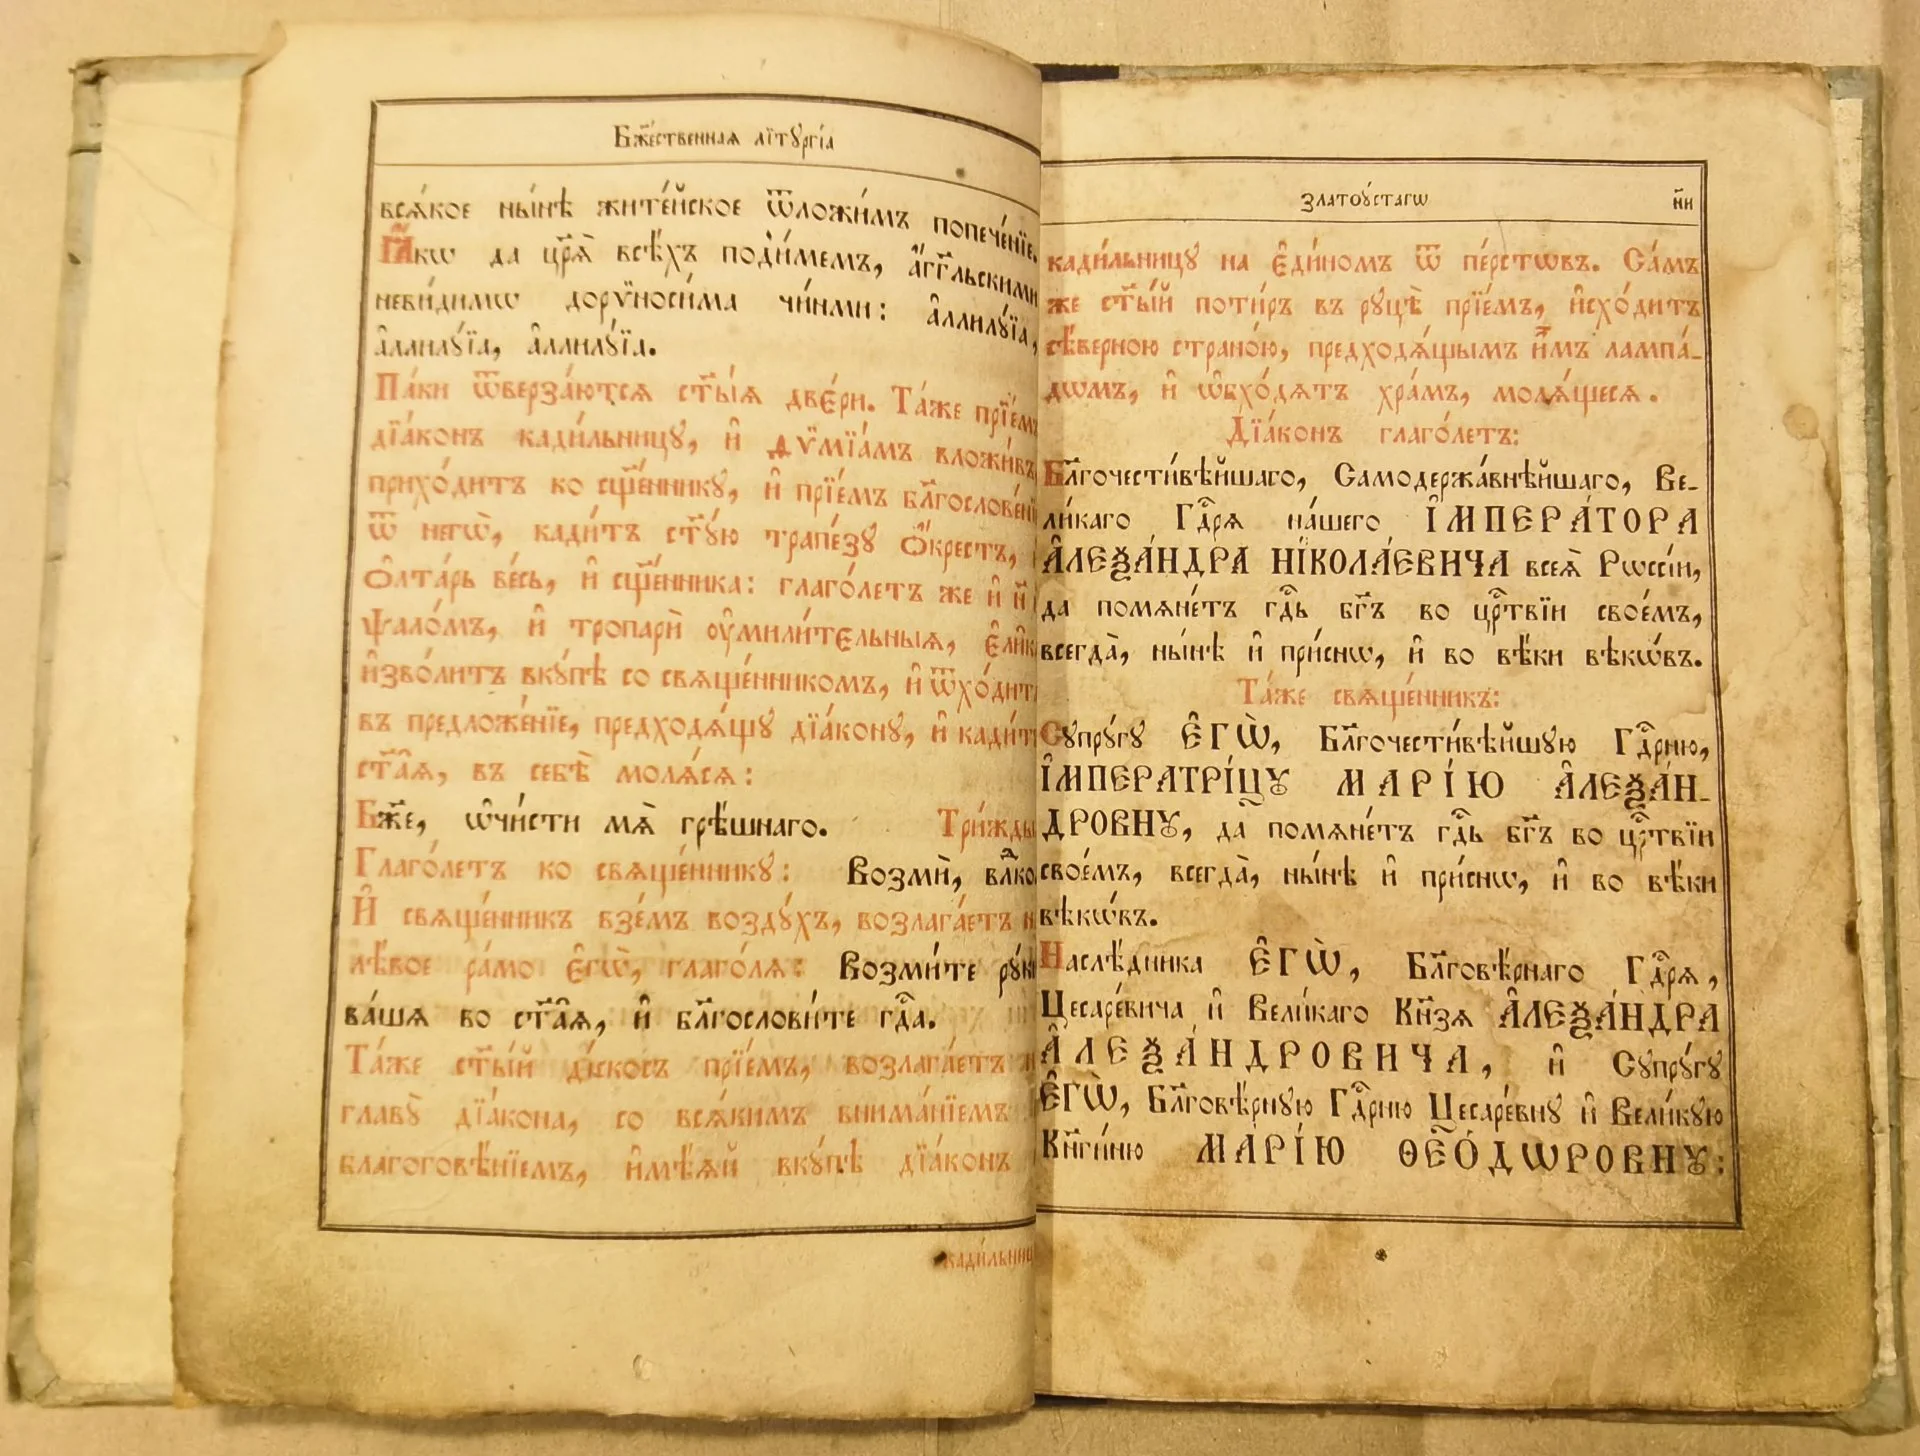 Бж҃е́ственнаѧ лїтꙋргі́а
всѧ́кое ны́нѣ жите́йское ѿложи́мъ попече́нїе.
Ꙗ҆́кѡ да цр҃ѧ̀ всѣ́хъ поди́мемъ, а҆́гг҃льскими
неви́димѡ дорѷноси́ма чи́нми: а҆ллилꙋ́їа,
а҆ллилꙋ́їа, а҆ллилꙋ́їа.
Па́ки ѿверза́ютсѧ ст҃ы́ѧ две́ри. Та́же прїе́мъ
дїа́конъ кади́льницꙋ, и҆ ѳѷмїа́мъ вложи́въ
прихо́дитъ ко сщ҃е́нникꙋ, и҆ прїе́мъ бл҃гослове́нї
ѿ негѡ̀, кади́тъ ст҃ꙋ́ю трапе́зꙋ ѻ҆́крестъ,
ѻ҆лта́рь ве́сь, и҆ сщ҃е́нника: глаго́летъ же и҆ н҃
ѱало́мъ, и҆ тропари̑ ᲂу҆мили́тельныѧ, є҆ли̑к
и҆зво́литъ вкꙋ́пѣ со свѧще́нникомъ, и҆ ѿхо́дит
въ предложе́нїе, предходѧ́щꙋ дїа́конꙋ, и҆ кади́тъ
ст҃а̑ѧ, въ себѣ̀ молѧ́сѧ:
Бж҃е, ѡ҆чи́сти мѧ̀ грѣ́шнаго. Три́жды
Глаго́летъ ко свѧще́нникꙋ: Возмѝ, влⷣко
И҆ свѧще́нникъ взе́мъ воздꙋ́хъ, возлага́етъ н
лѣ́вое ра́мо є҆гѡ̀, глаго́лѧ: Возми́те рꙋ́ки
ва́шѧ во ст҃а̑ѧ, и҆ бл҃гослови́те гдⷭ҇а.
Та́же ст҃ы́й ді́скосъ прїе́мъ, возлага́етъ н
главꙋ̀ дїа́кона, со всѧ́кимъ внима́нїемъ
благоговѣ́нїемъ, и҆мѣ́ѧй вкꙋ́пѣ дїа́конъ
кади́льниц
Златоꙋ́стагѡ н҃и
кади́льницꙋ на є҆ди́номъ ѿ пе́рстѡвъ. Са́мъ
же ст҃ы́й поти́ръ въ рꙋцѣ̀ прїе́мъ, и҆схо́дитъ
сѣ́верною страно́ю, предходѧ́щымъ и҆̀мъ лампа́-
дѡмъ, и҆ ѡ҆бхо́дѧтъ хра́мъ, молѧ́щесѧ.
Дїа́конъ глаго́летъ:
Бл҃гочести́вѣйшаго, Самодержа́внѣйшаго, Ве-
ли́каго Гдⷭ҇рѧ на́шего І҆МПЕРА́ТОРА
А҆ЛЕѮА́НДРА НІКОЛА́ЕВИЧА всеѧ̀ Рѡссі́и,
да помѧне́тъ гдⷭ҇ь бг҃ъ во црⷭ҇твїи свое́мъ,
всегда̀, ны́нѣ и҆ при́снѡ, и҆ во вѣ́ки вѣкѡ́въ.
Та́же свѧще́нникъ:
Сꙋпрꙋ́гꙋ Є҆ГѠ̀, Бл҃гочести́вѣйшꙋю Гдⷭ҇рню,
І҆МПЕРАТРІ́ЦꙊ МАРІ́Ю А҆ЛЕѮА́Н-
ДРОВНꙊ, да помѧне́тъ гдⷭ҇ь бг҃ъ во црⷭ҇твїи
свое́мъ, всегда̀, ны́нѣ и҆ при́снѡ, и҆ во вѣ́ки
вѣкѡ́въ.
Наслѣ́дника Є҆ГѠ̀, Бл҃говѣ́рнаго Гдⷭ҇рѧ,
Цесаре́вича и҆ Вели́каго Кн҃зѧ А҆ЛЕѮА́НДРА
А҆ЛЕѮА́НДРОВИЧА, и҆ Сꙋпрꙋ́гꙋ
Є҆ГѠ̀, Бл҃говѣ́рнꙋю Гдⷭ҇рню Цесаре́внꙋ и҆ Вели́кꙋю
Кн҃ги́ню МАРІ́Ю ѲЕО́ДѠРОВНꙊ: